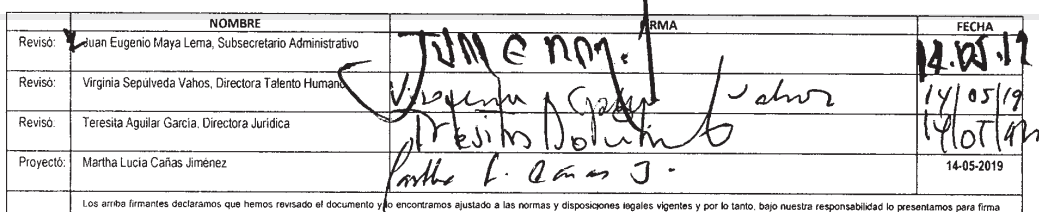 NOMBRE FIRMA FECHA
Revisó: Juan Eugenio Maya Lema, Subsecretario Administrativo 14.05.19
Revisó: Virginia Sepúlveda Vahos, Directora Talento Humano Virginia Vahos 14/05/19
Revisó: Teresita Aguilar Garcia, Directora Jurídica Teresita
Proyectó: Martha Lucia Cañas Jiménez Martha L. Cañas J. 14-05-2019
Los arriba firmantes declaramos que hemos revisado el documento y lo encontramos ajustado a las normas y disposiciones legales vigentes y por lo tanto, bajo nuestra responsabilidad lo presentamos para firma